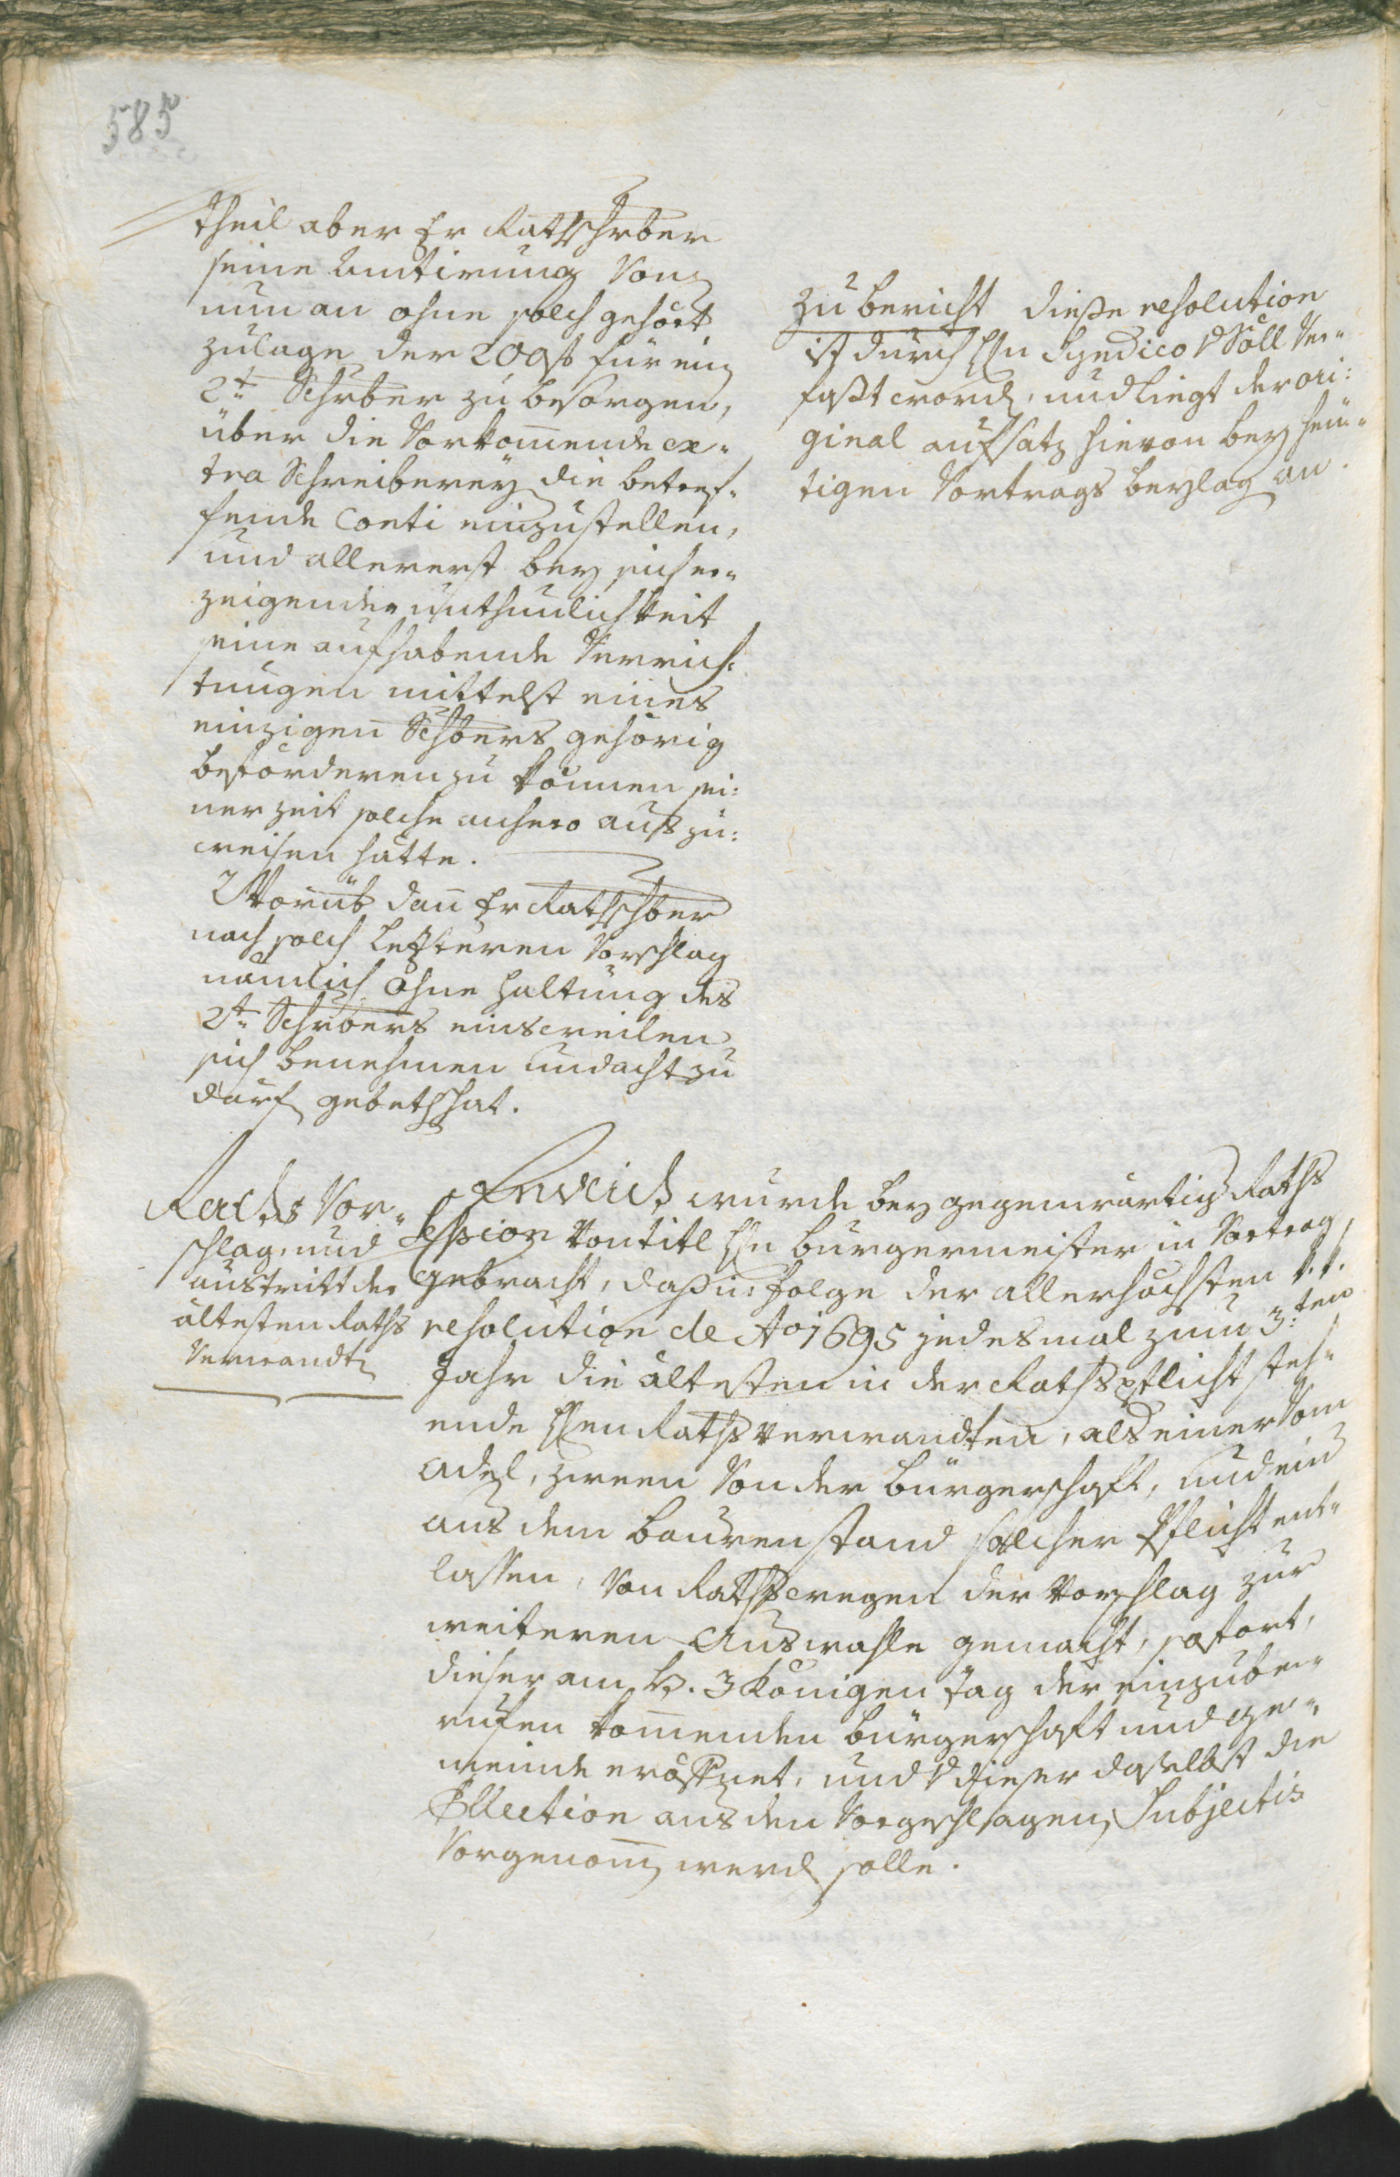 585
theil aber Er Rathschrber
seine Amtirung von
nun an ohne solch gehört
zulage der 200 f für ein
2t Schrber zu besorgen,
über die Vorkom̄ende ex-
tra Schreiberey die betref-
fende Conti einzustellen,
und allererst bey sich er-
zeigender unthunlichkeit
seine aufhabende Verrich-
tungen mittelst eines
einzigen Schbers gehörig
beförderen zu können sei-
ner zeit solche anhero auszu-
weisen hätte.
Worüb dan̄ Er Rathschber
nach solch letzteren Vorschlag
nämlich ohne haltung des
2t Schrbers einsweilen
sich benehmen und acht zu
därf gebethhat.
zu bericht diese resolution
ist durch Hn Syndico Söll ver-
fasst word, und liegt der ori-
ginal aufsatz hievon bey heu-
tigen Vortrags beylag an.
Raths Vor-
schlag, und
austritt der
ältesten Raths
Verwandt
Endlich wurde bey gegenwärtig Raths
Session von titl Hn burgermeister in Vortrag
gebracht, dass in folge der allerhöchsten t. t.
resolution de Ao 1695 jedesmal zum 3:ten
Jahr die ältesten in der Rathspflicht steh-
ende Hen Raths verwandten, als einer vom
Adel, zween von der bürgerschaft, und ein
aus dem baurenstand solcher Pflicht ent-
lassen, von Rathswegen der Vorschlag zur
weiteren Auswahle gemacht, sofort,
dieser am H. 3 Königen tag der einzube-
rufen kom̄enden bürgerschaft und ge-
meinde eröffnet, und dieser daselbst die
Ellection aus den Vorgeschlagen Subjectis
Vorgenom̄ werd solle.